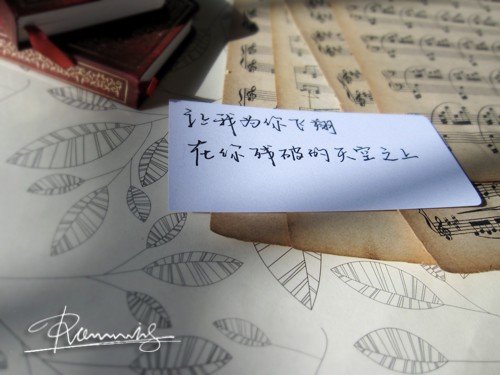 让我为你飞翔
在你残破的天空之上